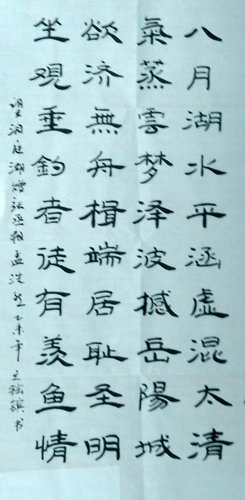 八月湖水平涵虚混太清
氣蒸雲梦泽波撼岳陽城
欲济無舟楫端居耻圣明
坐观垂釣者徒有羡鱼情
望洞庭湖赠张丞相孟浩然乙未年王书